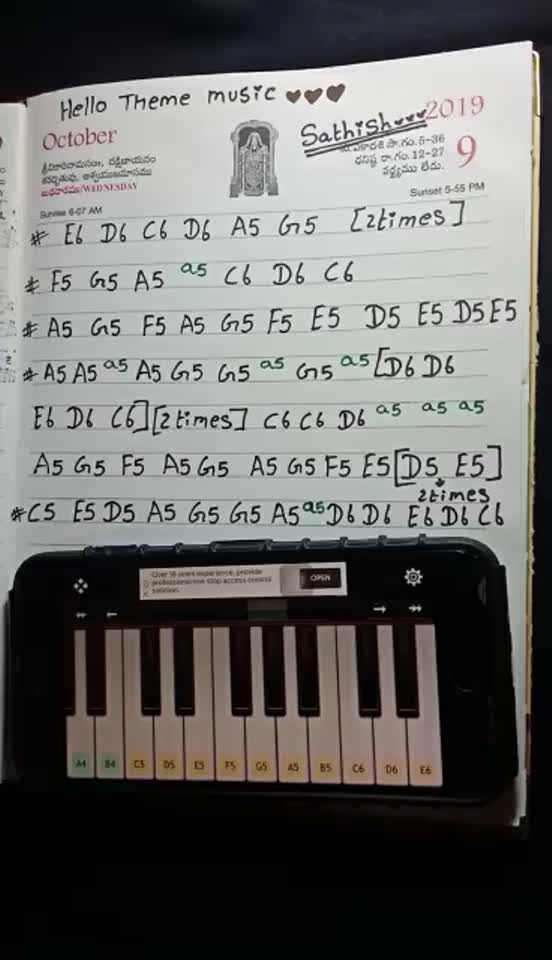 Hello Theme music
October
Sathish
2019
శ్రీవికారినామసం౹౹, దక్షిణాయనం
శరదృతువు, ఆశ్వయుజమాసము
బుధవారము/WEDNESDAY
శు.ఏకాదశి సా.గం.5-36
ధనిష్ఠ రా.గం.12-27
వర్జ్యము లేదు.
9
Sunrise 6-07 AM
Sunset 5-55 PM
# E6 D6 C6 D6 A5 G5 [2times]
# F5 G5 A5 a5 C6 D6 C6
# A5 G5 F5 A5 G5 F5 E5 D5 E5 D5 E5
# A5 A5 a5 A5 G5 G5 a5 G5 a5 [D6 D6
E6 D6 C6] [2times] C6 C6 D6 a5 a5 a5
A5 G5 F5 A5 G5 A5 G5 F5 E5 [D5 E5]
2times
# C5 E5 D5 A5 G5 G5 A5 a5 D6 D6 E6 D6 C6
Over 18 years experience, provide
professional one stop access control
solution.
OPEN
A4 B4 C5 D5 E5 F5 G5 A5 B5 C6 D6 E6